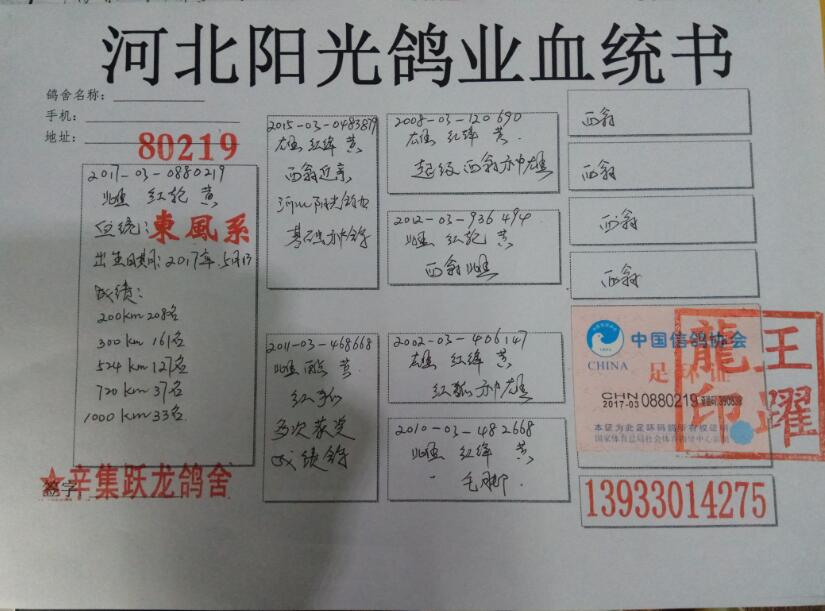 河北阳光鸽业血统书
鸽舍名称：
手机：
地址：
80219
2017-03-0880219
雌 红轮 黄
血统：東風系
出生日期：2017年.5月13
成绩：
200km 208名
300km 161名
524km 127名
720km 37名
1000km 33名
签字
★辛集跃龙鸽舍
2015-03-0483879
雄 红绛 黄
西翁近亲
河北阳光鸽业
基础种鸽
2011-03-468668
雌 雨点 黄
红狐
多次获奖
成绩鸽
2008-03-120690
雄 红绛 黄.
超级西翁种雄
2012-03-936494
雌 红轮 黄
西翁雌
2002-03-406147
雄 红绛 黄
红狐种雄
2010-03-482668
雌 红绛 黄
西翁
西翁
西翁
西翁
中国信鸽协会
CHINA
足环证
CHN
2017-03 0880219
本证为此足环码鸽所有权证明
國家体育总局社会体育指导中心监制
龍王
印躍
13933014275